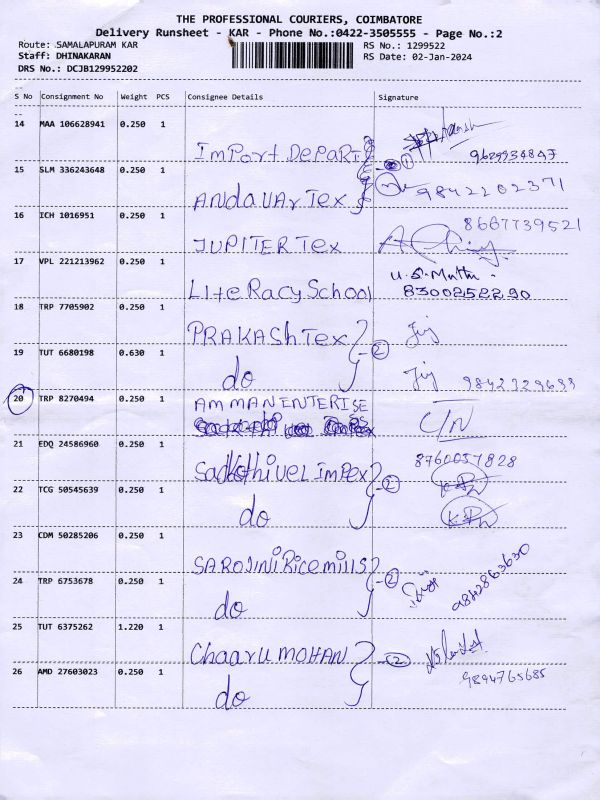 THE PROFESSIONAL COURIERS, COIMBATORE
Delivery Runsheet - KAR - Phone No.:0422-3505555 - Page No.:2
Route: SAMALAPURAM KAR RS No.: 1299522
Staff: DHINAKARAN RS Date: 02-Jan-2024
DRS No.: DCJB129952202
S No Consignment No Weight PCS Consignee Details Signature
14 MAA 106628941 0.250 1
Import Depart 1
15 SLM 336243648 0.250 1
Andavar Tex 9842202371
16 ICH 1016951 0.250 1 8667739521
JUPITER Tex
17 VPL 221213962 0.250 1
Lite Racy School 8300252290
18 TRP 7705902 0.250 1
PRAKASH Tex 2
19 TUT 6680198 0.630 1
do
20 TRP 8270494 0.250 1 AMMAN ENTERISE C/N
21 EDQ 24586960 0.250 1 8760057828
Sakthivel Impex 2
22 TCG 50545639 0.250 1
do
23 CDM 50285206 0.250 1
SAROJINI Rice mills 2
24 TRP 6753678 0.250 1 9842863630
do
25 TUT 6375262 1.220 1
Chaaru MOHAN 2
26 AMD 27603023 0.250 1 9894765685
do